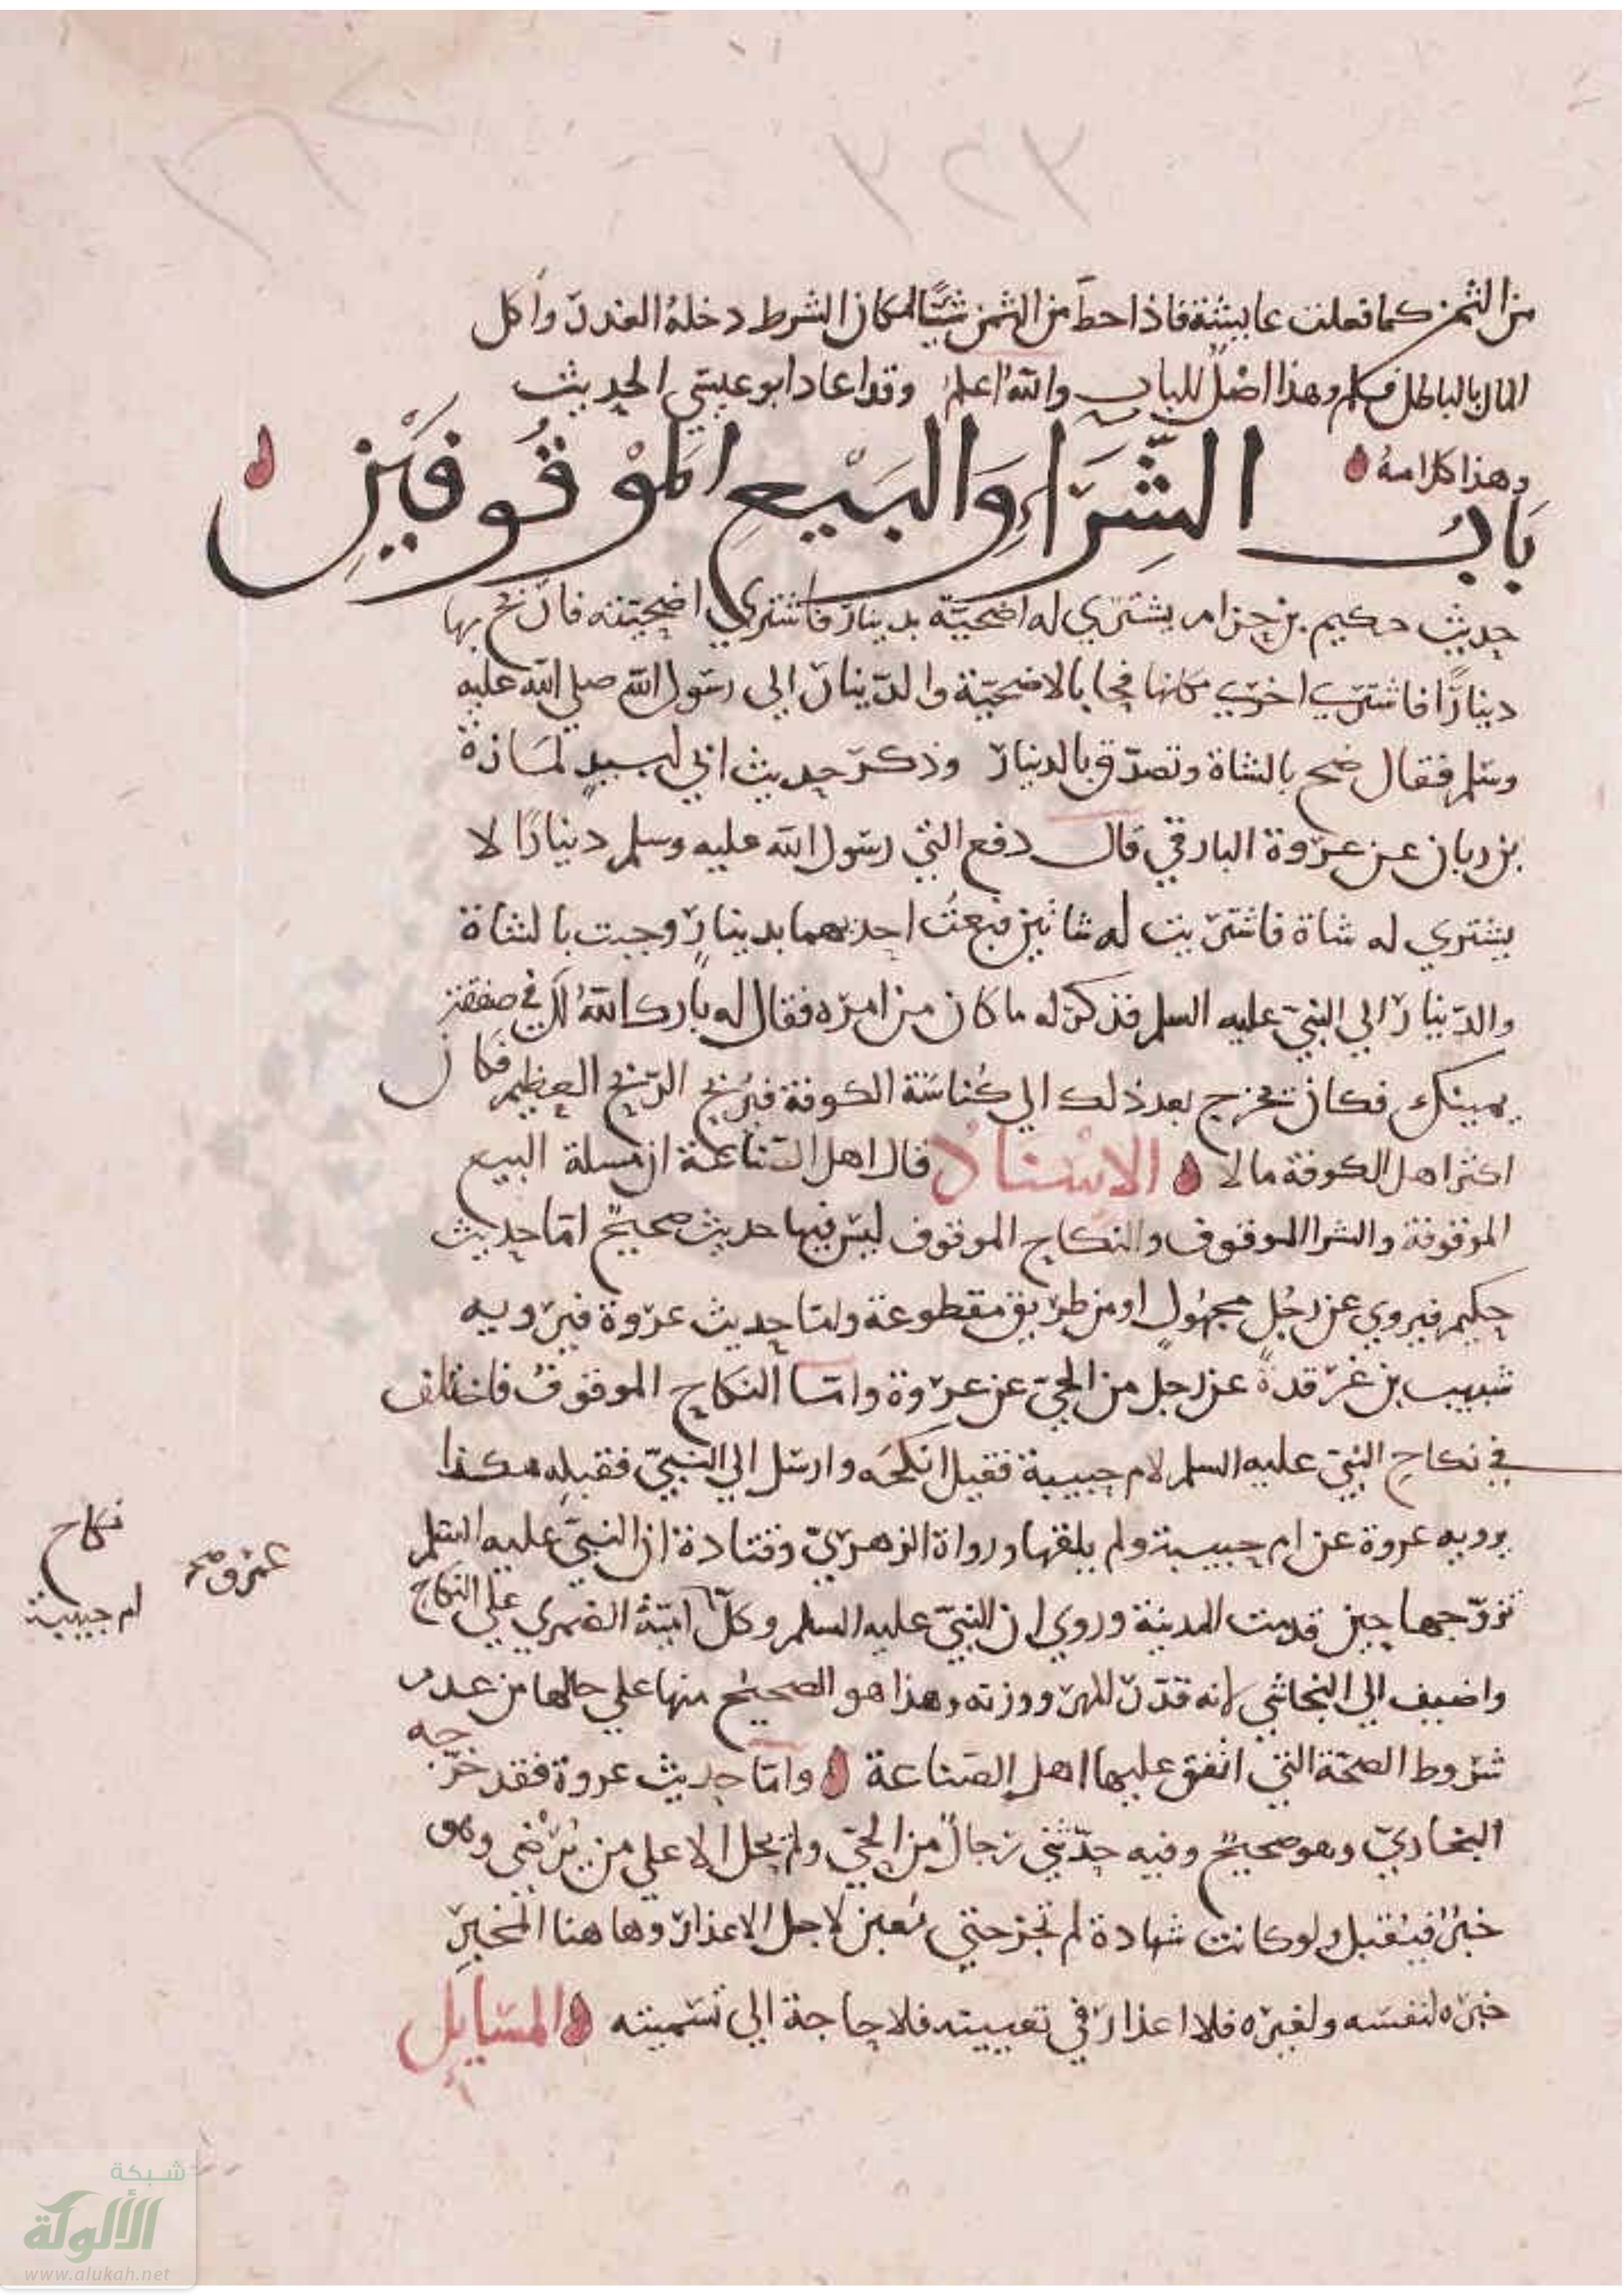 ٣٢٣
من الثمن كما فعلت عايشة فاذا حط من الثمن شيًا لمكان الشرط دخله الغرر واكل
المال بالباطل فكلم وهذا اصْلٌ للباب والله اعلم وقد اعاد ابو عيسى الحديث
وهذا كلامه
بَابُ الشِّرَاءِ وَالبَيْعِ المَوْقُوفَيْنِ
حديث حكيم بن حزام يشتري له اضحيّة بدينار فاشترى اضحيته فاربح بها
دينارًا فاشترى اخرى مكانها فجا بالاضحيّة والدينار الى رسول الله صلى الله عليه
وسلم فقال ضح بالشاة وتصدّق بالدينار وذكر حديث ابي لبيد لمازة
بن زبار عن عروة البارقي قال دفع الي رسول الله عليه وسلم دينارًا لا
يشتري له شاة فاشتريت له شاتين فبعتُ احديهما بدينارٍ وجيت بالشاة
والدينار الى النبي عليه السلم فذكر له ما كان من امره فقال له بارك اللهُ لك في صفقة
يمينك فكان يخرج بعد ذلك الى كُناسَة الكوفة فيربح الربح العظيم فكان
اكثر اهل الكوفة مالا الاسْنادُ قال اهل الصناعة ان مسلة البيع
الموقوفة والشرا الموقوف والنكاح الموقوف ليس فيها حديث صحيحٌ امّا حديث
حكيم فيروي عن رجُلٍ مجهُولٍ او من طريق مقطوعة وامّا حديث عروة فيرويه
شبيب بن غرقدة عن رجل من الحيّ عن عروة وامّا النكاح الموقوفُ فاختلف
في نكاحِ النبيّ عليه السلم لام حبيبة فقيل انكحَه وارسل الى النبيّ فقبله هكذا
يرويه عروة عن ام حبيبة ولم يلقها ورواة الزهريّ وقتادة ان النبيّ عليه السلم
تزوّجها حين قدمت المدينة وروي ان النبيّ عليه السلم وكّل اميّةُ الضمري على النكاح
واضيف الى النجاشي لانه قدّر المهر ووزنه وهذا هو الصحيح منها على حالها من عدم
شروط الصحّة التي اتفق عليها اهل الصّناعة وامّا حديث عروة فقد خرّجه
البخاريّ وهو صحيحٌ وفيه حدّثني رجالٌ من الحيّ ولم يحل الا على من يُرْضَى وهو
خبرٌ فيُقبل ولو كانت شهادة لم تجز حتى تُعين لاجل الاعذار وها هنا المخبِر
خبره لنفسه ولغيره فلا اعذار في تعيينه فلا حاجة الى تسميته المسَايِل
نكاح
ام حبيبة
عمرو صح
شبكة
الألوكة
www.alukah.net